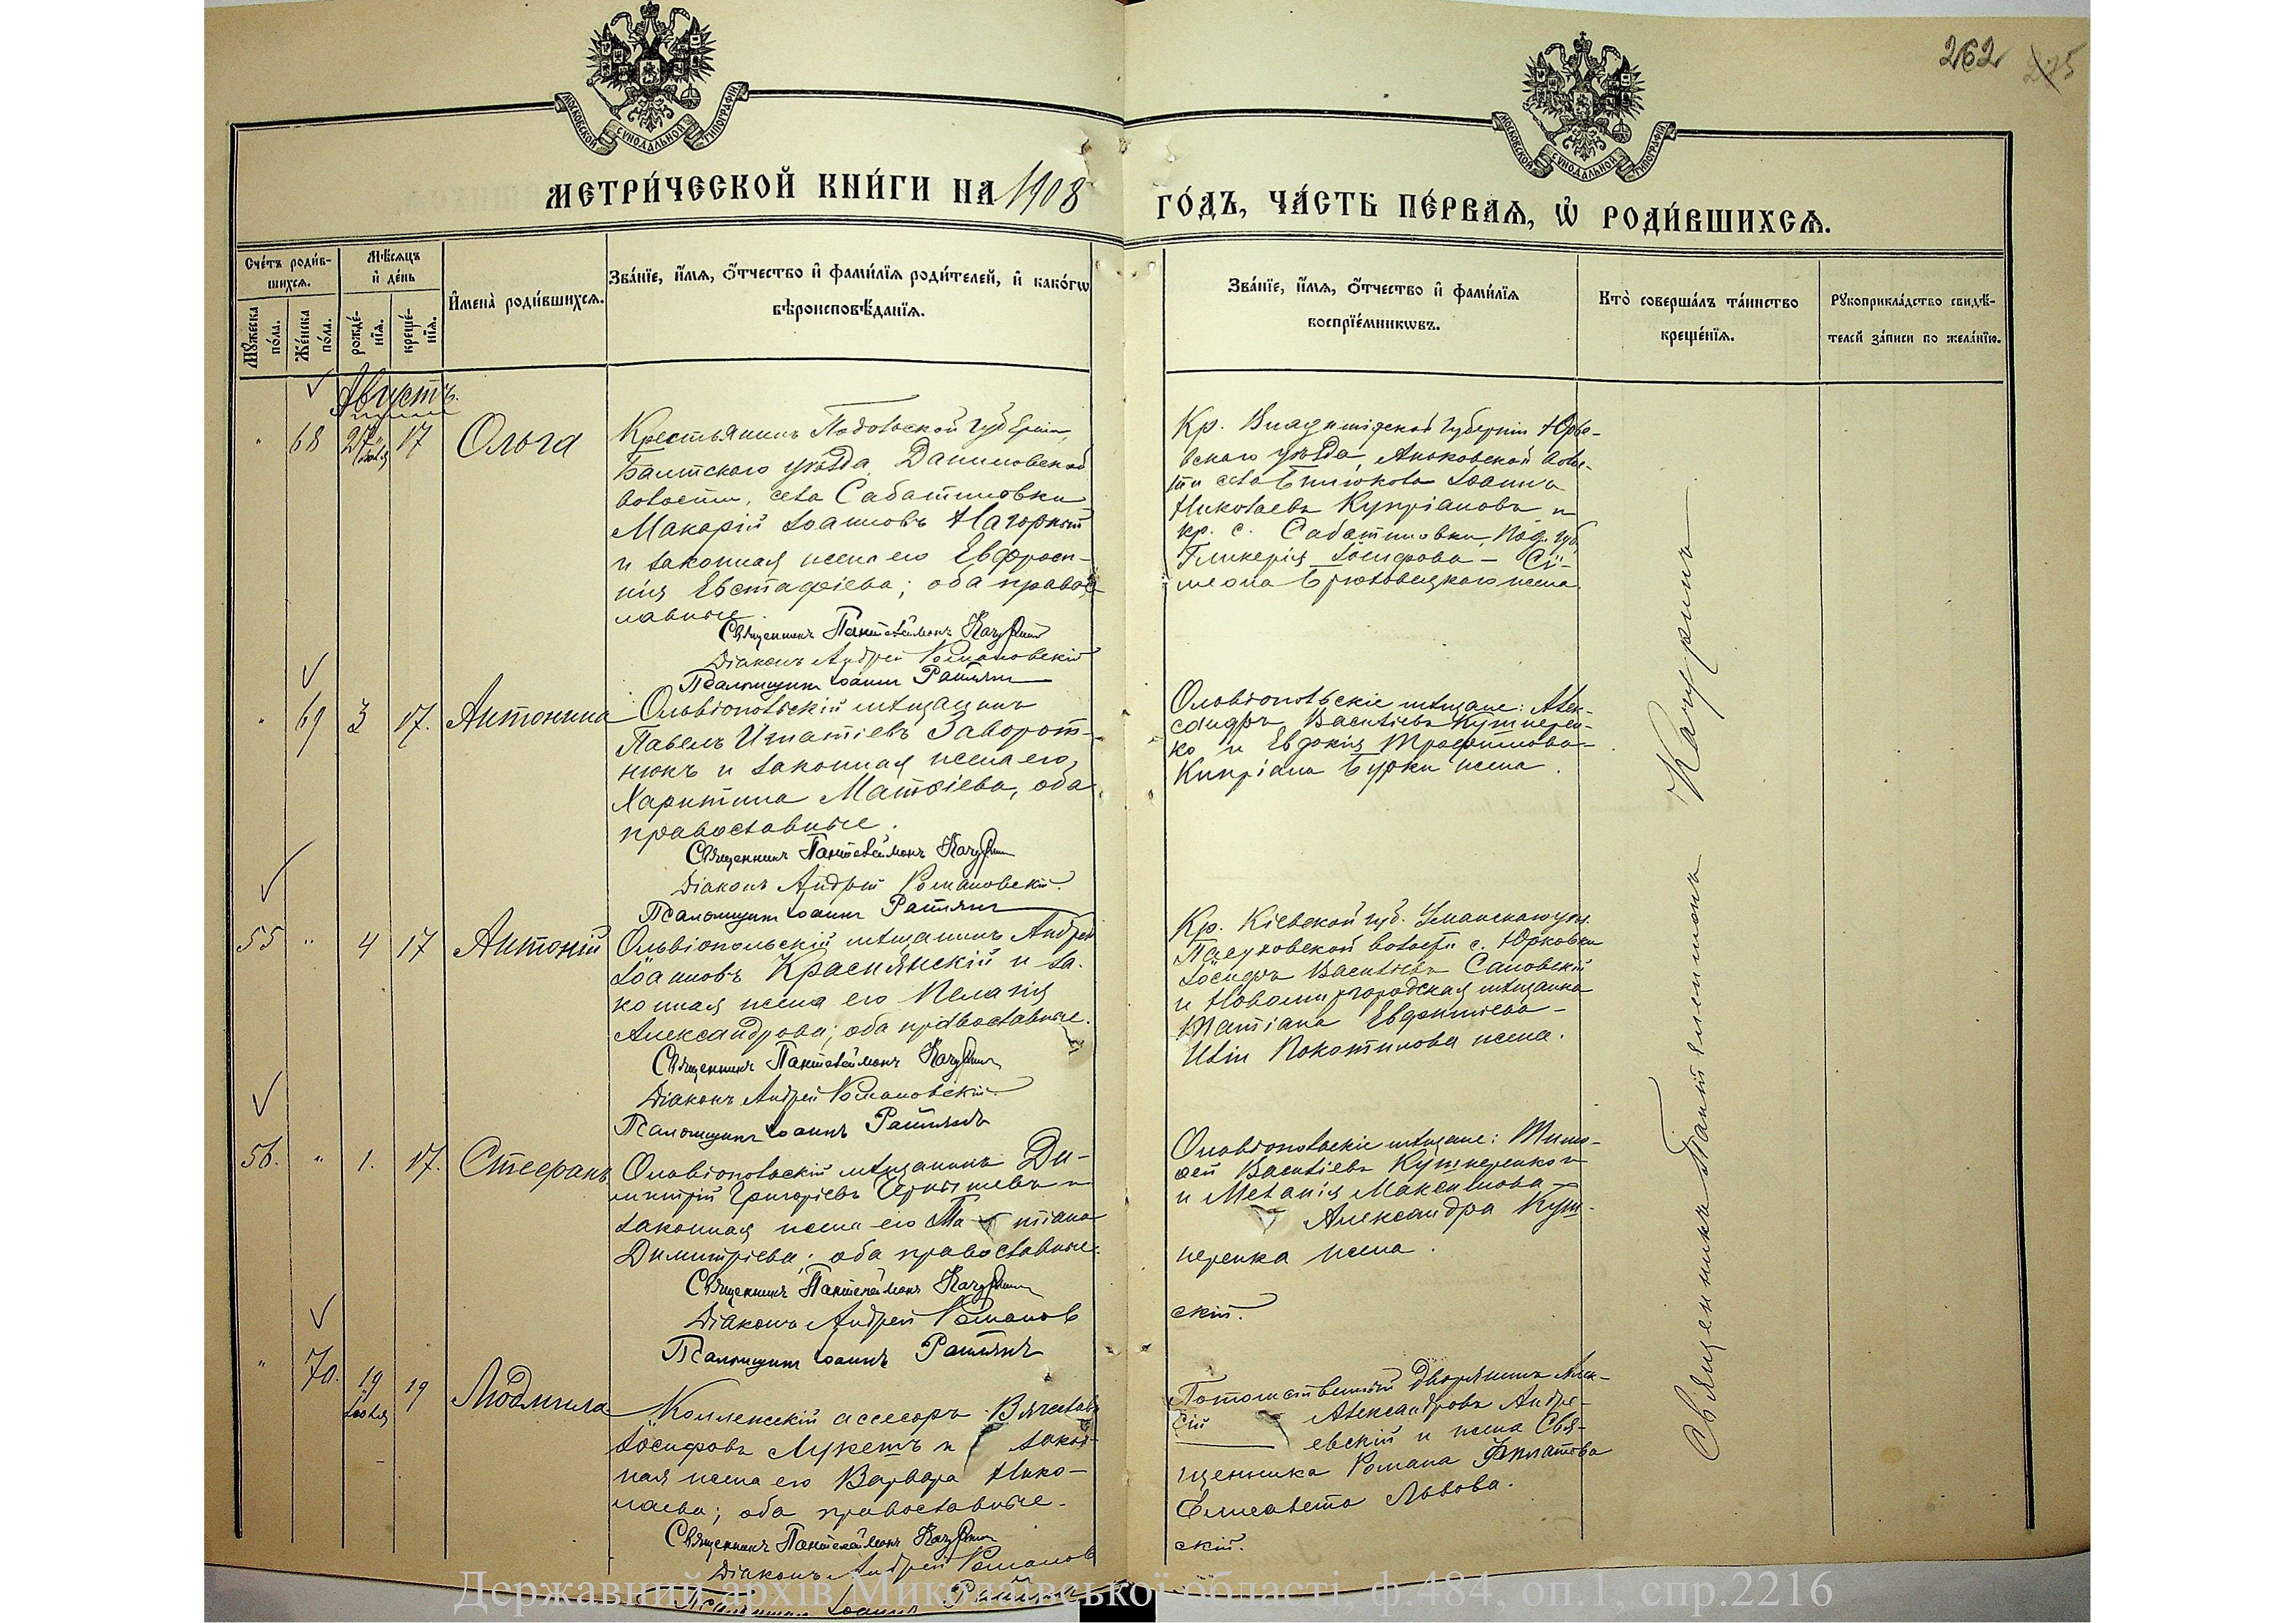 262 275
МОСКОВСКОЙ СѴНОДАЛЬНОЙ ТИПОГРАФІИ
МОСКОВСКОЙ СѴНОДАЛЬНОЙ ТИПОГРАФІИ
МЕТРИ́ЧЕСКОЙ КНИ́ГИ НА 1908
ГО́ДЪ, ЧА́СТЬ ПЕ́РВАѦ, Ѡ҆ РОДИ́ВШИХСѦ.
Сче́тъ роди́в-
шихсѧ.
Мꙋ́жеска по́ла.
Же́нска по́ла.
Мѣ́сѧцъ
и҆ де́нь
рожде́-
нїѧ.
креще́-
нїѧ.
И҆мена̀ роди́вшихсѧ.
Зва́нїе, и҆́мѧ, ѻ҆́тчество и҆ фами́лїѧ роди́телей, и҆ како́гѡ
вѣроисповѣ́данїѧ.
Зва́нїе, и҆́мѧ, ѻ҆́тчество и҆ фами́лїѧ
воспрїе́мникѡвъ.
Кто̀ соверша́лъ та́инство
креще́нїѧ.
Рꙋкоприкла́дство свидѣ́-
телей за́писи по жела́нїю.
Августъ.
" 68 27 Іюля 17 Ольга
Крестьянинъ Подольской губерніи,
Балтскаго уѣзда, Даниловской
волости, села Сабатиновки
Макарій Іоанновъ Нагорный
и законная жена его Евфроси-
нія Евстафіева; оба право-
славные
Священникъ Пантелеймонъ Качуринъ
Діаконъ Андрей Романовскій
Псаломщикъ Іоаннъ
Кр. Владимірской губерніи Юрье-
вскаго уѣзда, Аньковской воло-
сти села Іоаннъ
Николаевъ Купріановъ и
кр. с. Сабатиновки, Под. губ.
Гликерія Іосифова – Си-
меона жена
" 69 3 17. Антонина
Ольвіопольскій мѣщанинъ
Павелъ Игнатіевъ Заворот-
нюкъ и законная жена его
Харитина Матѳіева, оба
православные.
Священникъ Пантелеймонъ Качуринъ
Діаконъ Андрей Романовскій.
Псаломщикъ Іоаннъ
Ольвіопольскіе мѣщане: Алек-
сандръ Васильевъ Кушнерен-
ко и Евдокія Трофимова –
Кипріана Бурки жена.
55 " 4 17 Антоній
Ольвіопольскій мѣщанинъ Андрей
Іоанновъ Краснянскій и за-
конная жена его Пелагія
Александрова; оба православные.
Священникъ Пантелеймонъ Качуринъ
Діаконъ Андрей Романовскій.
Псаломщикъ Іоаннъ
Кр. Кіевской губ. Уманскаго у.
волости с. Юрковки
Іосифъ Васильевъ
и Новомиргородская мѣщанка
Татіана Евфиміева –
Иліи Покотилова жена.
56. " 1. 17. Стефанъ
Ольвіопольскій мѣщанинъ Ди-
митрій Григоріевъ Чернышевъ и
законная жена его Татіана
Димитріева; оба православные.
Священникъ Пантелеймонъ Качуринъ
Діаконъ Андрей Романов
Псаломщикъ Іоаннъ
Ольвіопольскіе мѣщане: Тимо-
фей Васильевъ Кушнеренко
и Меланія Максимова –
Александра Куш-
неренка жена.
скій.
" 70. 19 Іюля 19 Людмила
Коллежскій ассесоръ Вячеславъ
Іосифовъ и закон-
ная жена его Варвара Нико-
лаева; оба православные.
Священникъ Пантелеймонъ Качуринъ
Діаконъ Андрей Романов
Псаломщикъ Іоаннъ
Потомственный дворянинъ Алек-
сій Александровъ Андре-
евскій и жена Свя-
щенника Романа Филатова
Елисавета Львова.
скій.
Священникъ Пантелеимонъ Качуринъ
Державний архів Миколаївської області, ф.484, оп.1, спр.2216